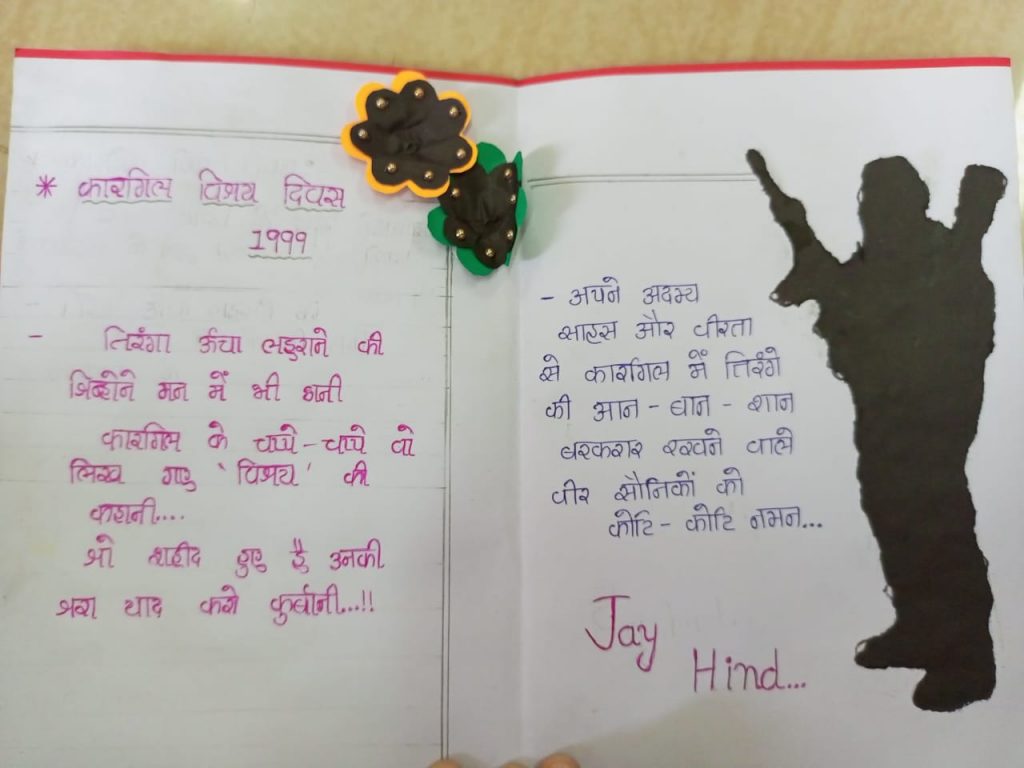 * कारगिल विजय दिवस
1999
- तिरंगा ऊंचा लहराने की
जिन्होने मन में भी ठानी
कारगिल के चप्पे-चप्पे वो
लिख गए 'विजय' की
कहानी....
जो शहीद हुए है उनकी
जरा याद करो कुर्बानी...!!
- अपने अदम्य
साहस और वीरता
से कारगिल में तिरंगे
की आन - बान - शान
बरकरार रखने वाले
वीर सैनिकों को
कोटि - कोटि नमन...
Jay
Hind...